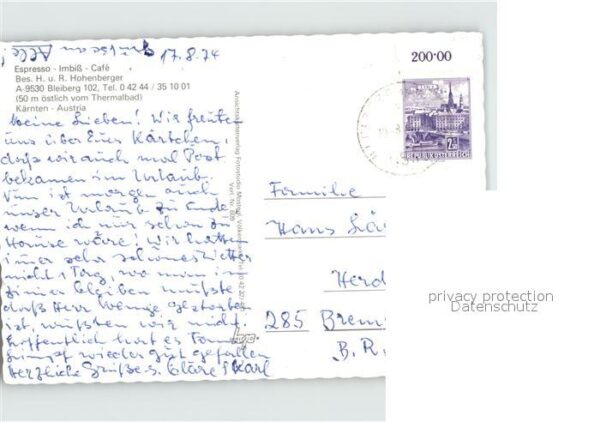 Grüße an Alle!
17.8.74
200·00
Espresso - Imbiß - Café
Bes. H. u. R. Hohenberger
A-9530 Bleiberg 102, Tel. 0 42 44 / 35 10 01
(50 m östlich vom Thermalbad)
Kärnten - Austria
Meine Lieben! Wir freuten
uns über Euer Kärtchen,
daß wir auch mal Post
bekamen im Urlaub.
Nun ist morgen auch
unser Urlaub zu Ende
wenn ich nur schon zu
Hause wäre! Wir hatten
imer sehr schönes Wetter
nicht 1 Tag, wo man im
Zimer bleiben mußte
daß Herr Wenge gestorben
ist, wußten wir nicht.
Hoffentlich hat es
wieder gut gefallen
Herzliche Grüße s. Cläre + Karl
Ansichtskartenverlag
Verl. Nr.
2S
REPUBLIK ÖSTERREICH
Familie
Hans
Herd
285 Brem
B.R.
privacy protection
Datenschutz